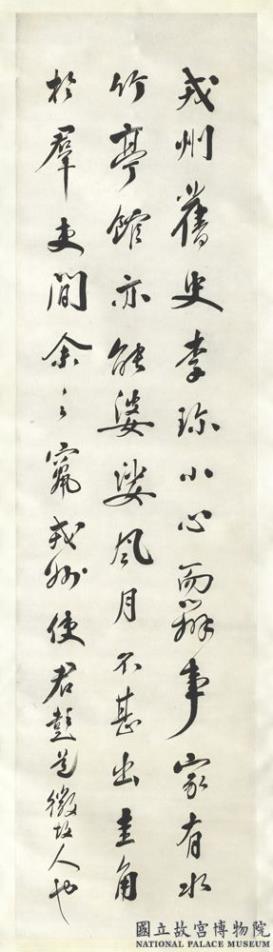 戎州舊史李珍小心而辦事家有水
竹亭館亦能婆娑風月不甚出圭角
於羣吏間余之竄戎州使君彭道微故人也
國立故宮博物院
NATIONAL PALACE MUSEUM